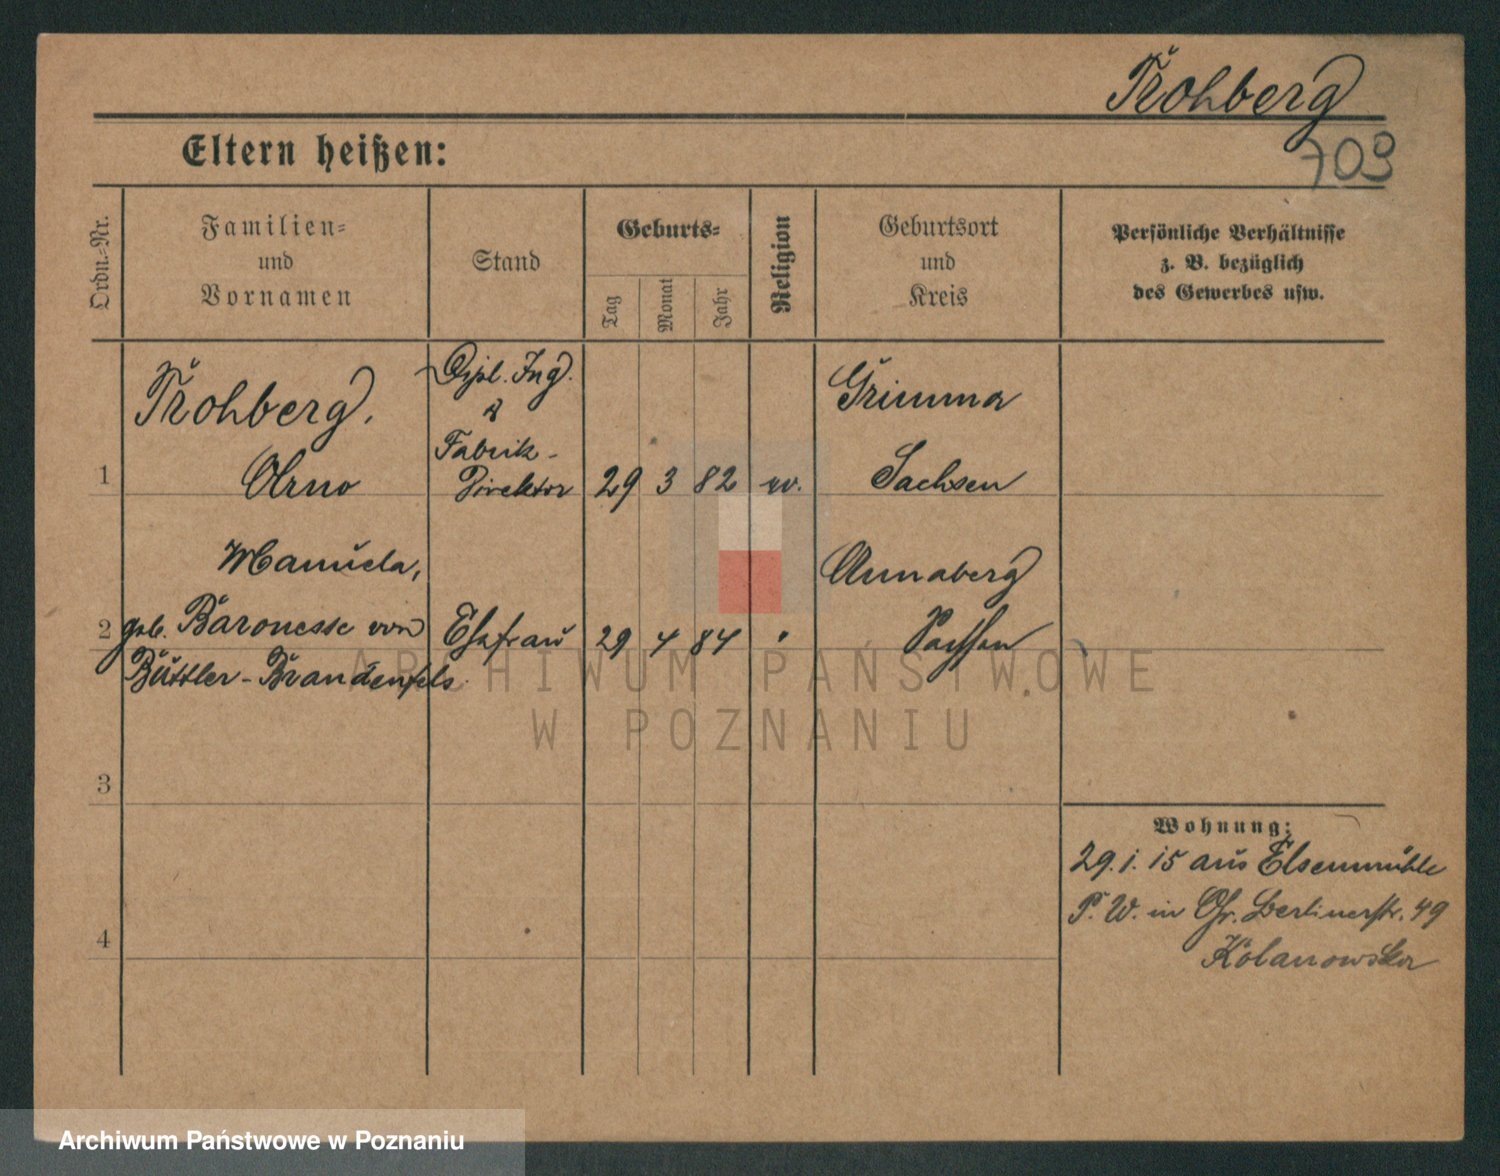 Trohberg
709
Eltern heißen:
Ordn.-Nr.
Familien-
und
Vornamen
Stand
Geburts-
Tag
Monat
Jahr
Religion
Geburtsort
und
Kreis
Persönliche Verhältnisse
z. B. bezüglich
des Gewerbes usw.
1
Trohberg.
Arno
Dipl. Ing.
&
Fabrik-
Direktor
29 3 82
ev.
Grimma
Sachsen
2
Manuela,
geb. Baronesse von
Buttler-Brandenfels.
Ehefrau
29 4 84
Annaberg
Sachsen
3
4
Wohnung:
29.1.15 aus Elsenmühle
P. W. in Gr. Berlinerstr. 49
Kolanowska
ARCHIWUM PAŃSTWOWE
W POZNANIU
Archiwum Państwowe w Poznaniu